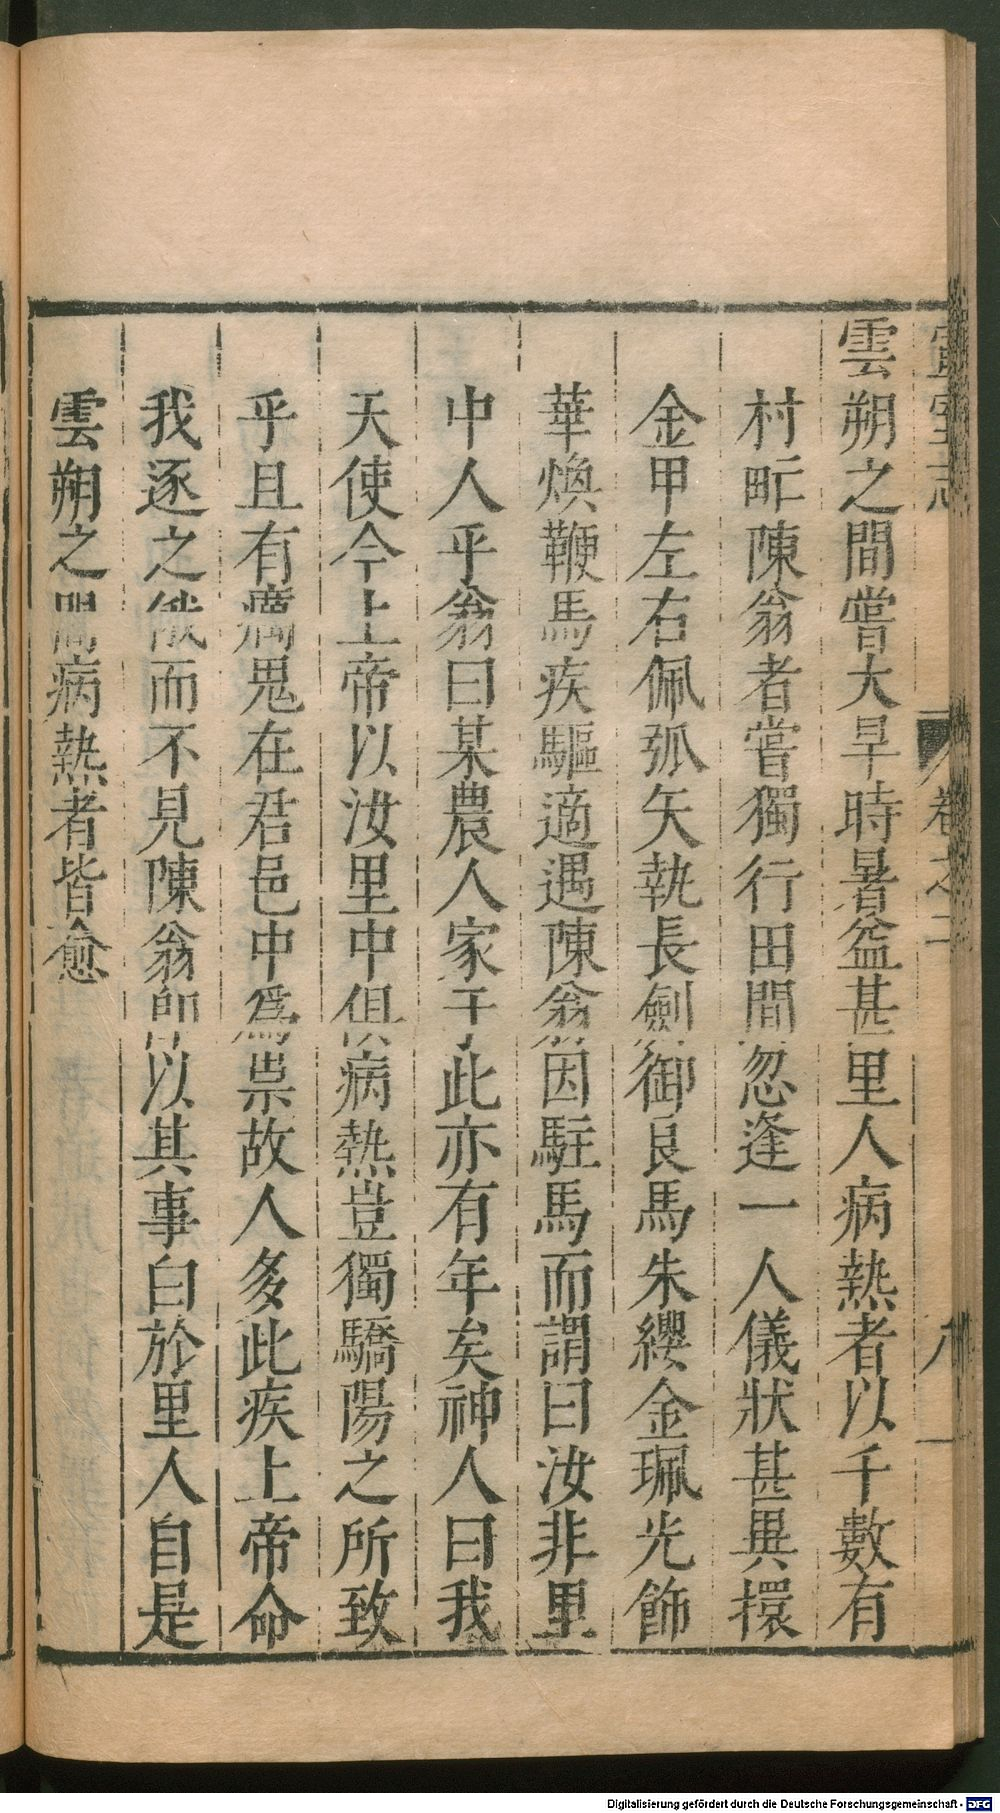 宣室志 卷之二 八
雲朔之間嘗大旱時暑盆甚里人病熱者以千數有
村甿陳翁者嘗獨行田間忽逢一人儀狀甚異擐
金甲左右佩弧矢執長劍御良馬朱纓金珮光飾
華煥鞭馬疾驅適遇陳翁因駐馬而謂曰汝非里
中人乎翁曰某農人家于此亦有年矣神人曰我
天使今上帝以汝里中俱病熱豈獨驕陽之所致
乎且有癘鬼在君邑中為祟故人多此疾上帝命
我逐之俄而不見陳翁即以其事白於里人自是
雲朔之間病熱者皆愈
Digitalisierung gefördert durch die Deutsche Forschungsgemeinschaft - DFG